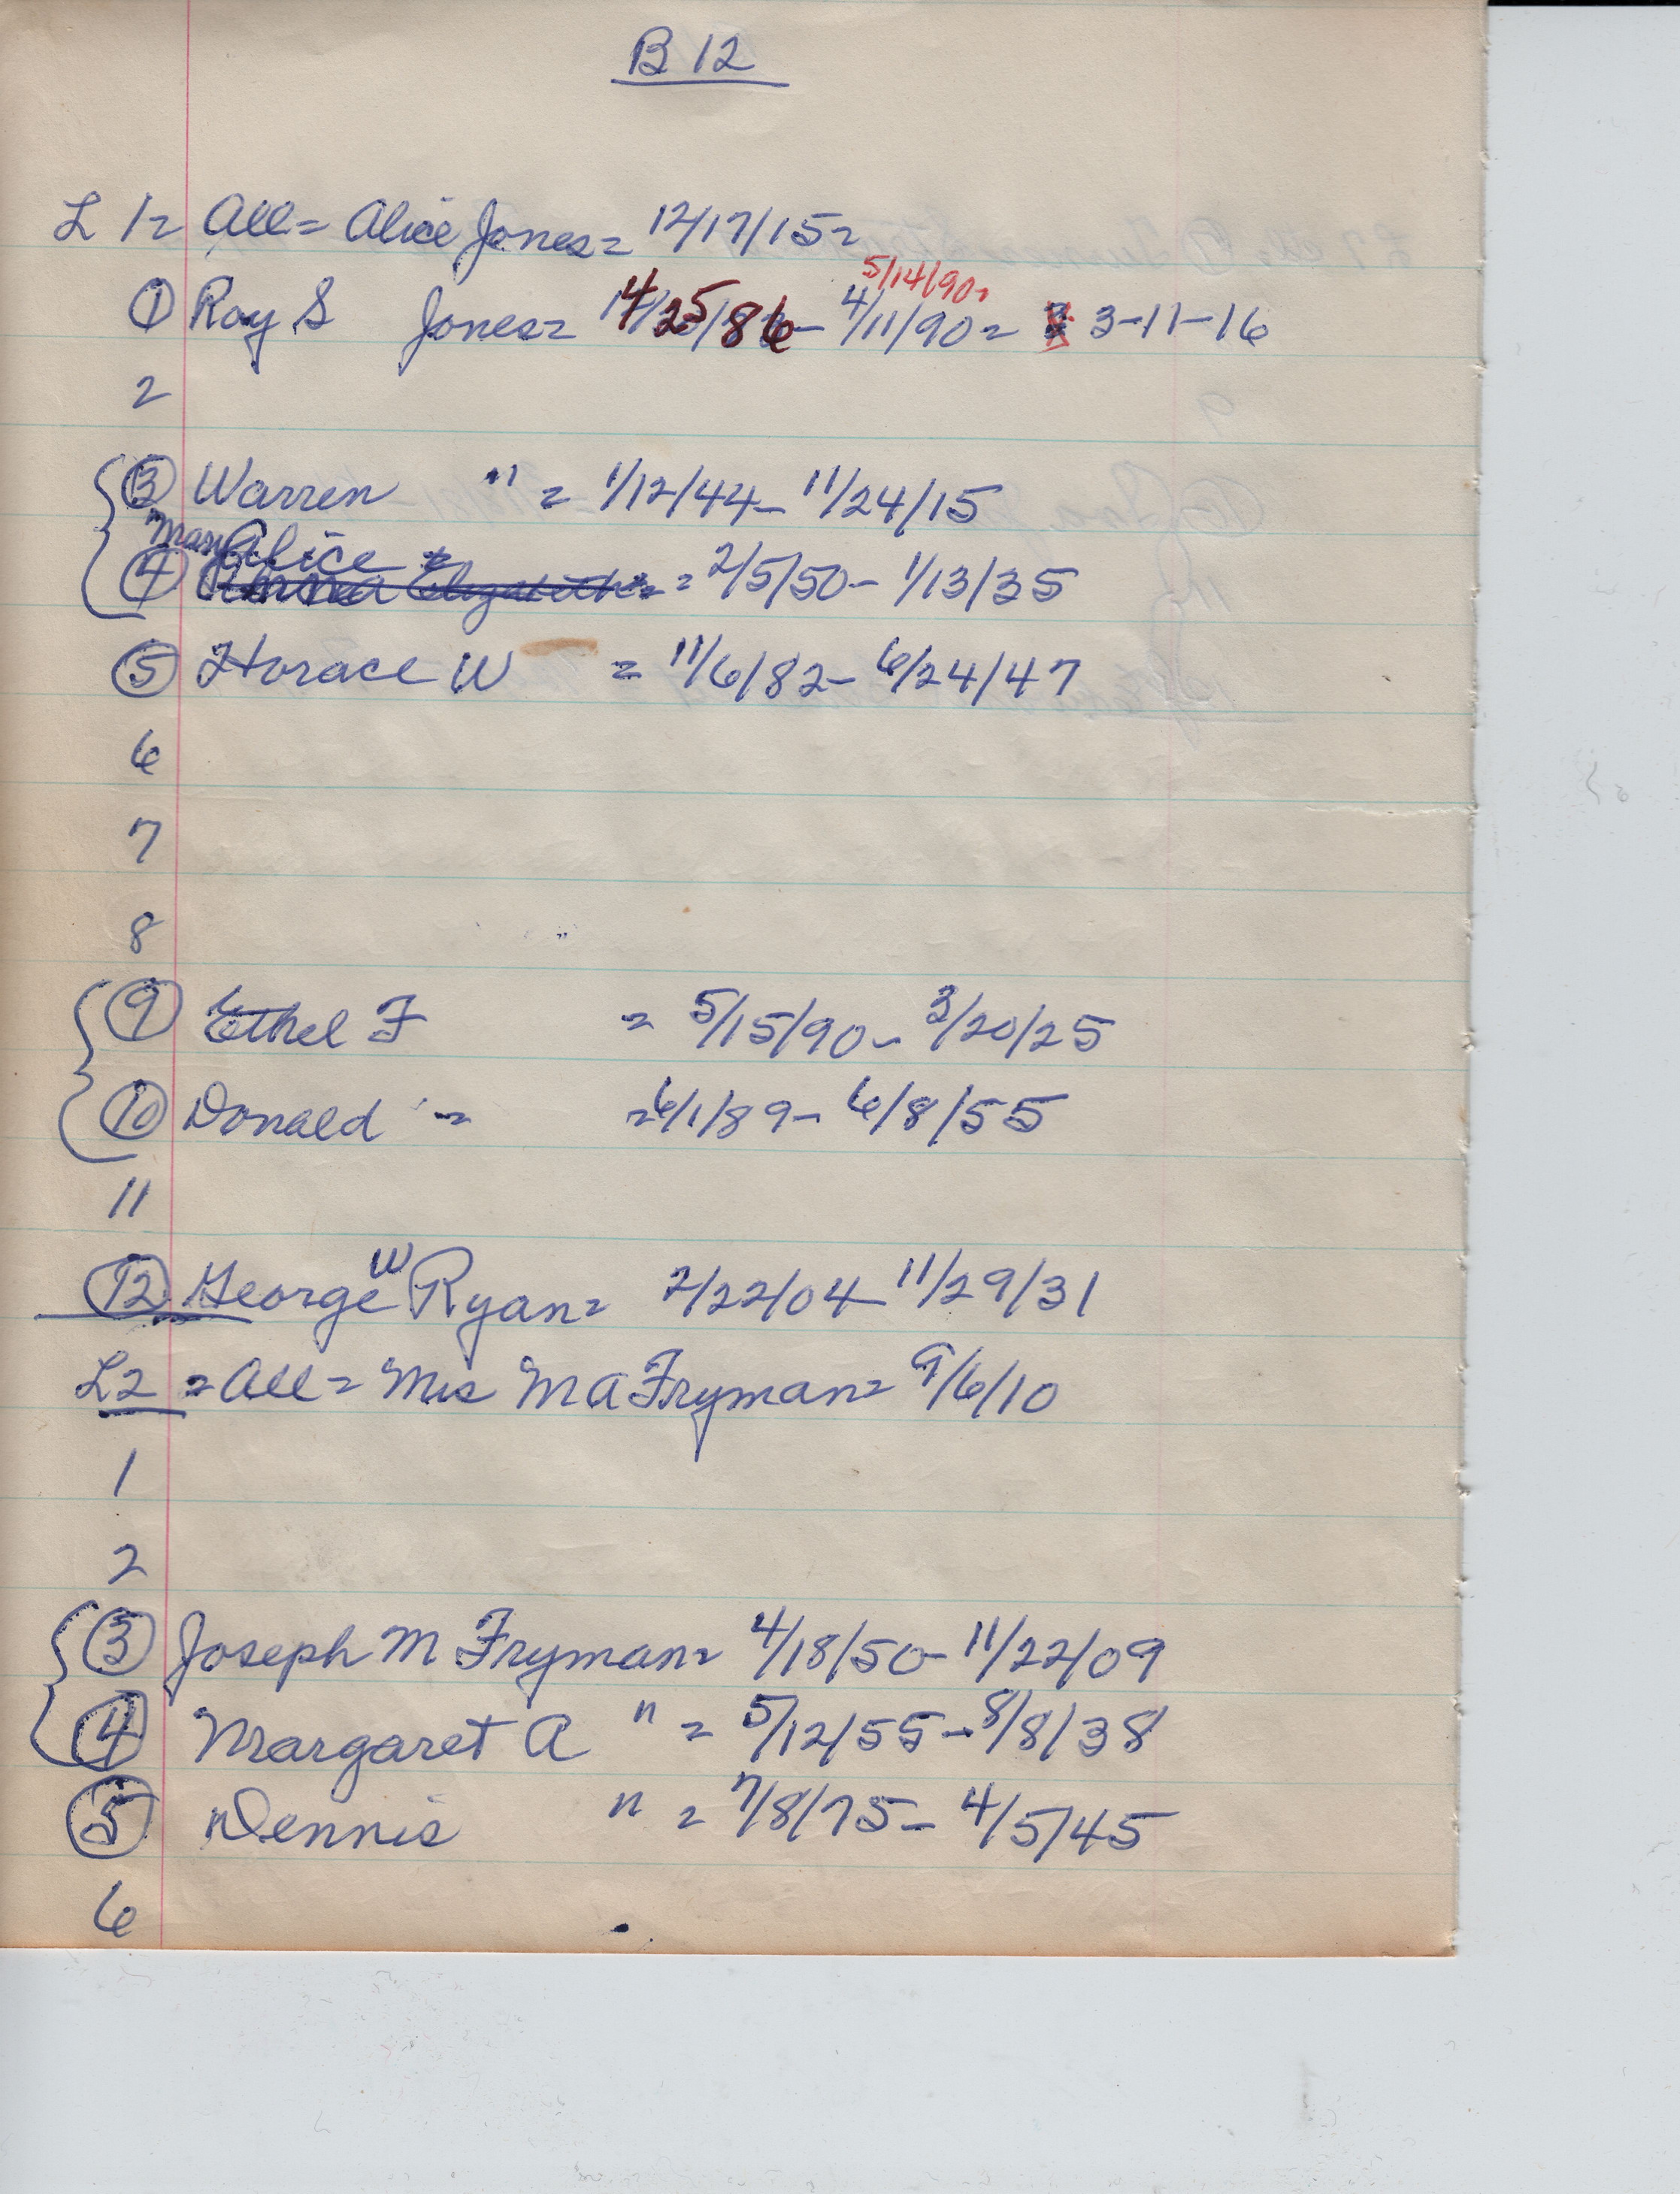 B 12
L 1= All= Alice Jones= 12/17/15=
5/14/90=
① Roy S Jones= 4/25/86- 4/11/90= 3-11-16
2
③ Warren " = 1/12/44- 11/24/15
Mary Alice "
④ Emma Elizabeth = 2/5/50- 1/13/35
⑤ Horace W = 11/6/82- 6/24/47
6
7
8
⑨ Ethel F = 5/15/90- 3/20/25
⑩ Donald = =6/1/89- 6/8/55
11
W
⑫ George Ryan= 2/22/04- 11/29/31
L2 =All= Mrs M A Fryman= 9/6/10
1
2
③ Joseph M Fryman= 4/18/50- 11/22/09
④ Margaret A " = 5/12/55- 8/8/38
⑤ Dennis " = 7/8/75- 4/5/45
6